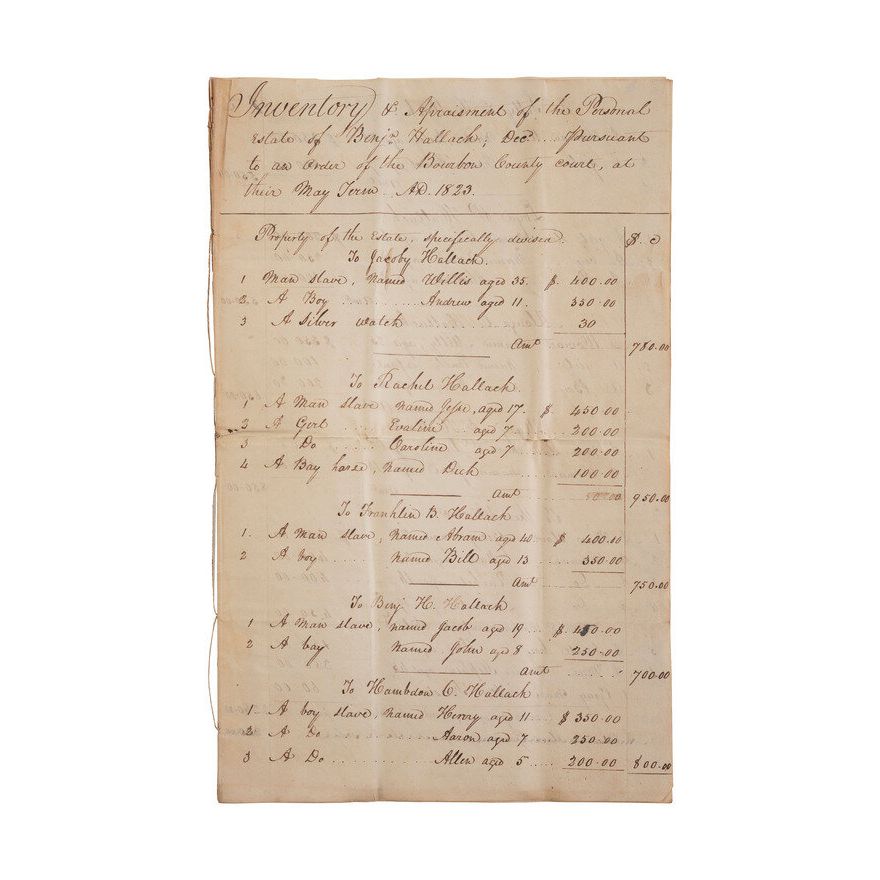 Inventory & Apraisment of the Personal
Estate of Benjn Hallack, Decd .... Pursuant
to an order of the Bourbon County court, at
their May Term AD. 1823
Property of the Estate, specifically devised. $. c
To Jacoby Hallack.
1 Man slave, named Willis aged 35. $. 400.00
2 A Boy ...... Andrew aged 11. 350.00
3 A Silver watch 30
Amt 780.00
To Rachel Hallack.
1 A Man slave named Jesse, aged 17. $ 450.00
2 A Girl .... Evaline aged 7 200.00
3 Do Caroline aged 7 200.00
4 A Bay horse, named Dick 100.00
Amt 950.00
To Franklin B. Hallack
1. A man slave, named Abram aged 40. $ 400.00
2 A boy ..... named Bill aged 13 350.00
Amt 750.00
To Benj. H. Hallack
1 A Man slave, named Jacob aged 19 ... $. 450.00
2 A boy named John aged 8 . 250.00
Amt 700.00
To Hambdon C. Hallack
1 A boy slave, named Henry aged 11 ... $ 350.00
2 A Do Aaron aged 7 250.00
3 A Do .......... Allen aged 5 ..... 200.00 800.00